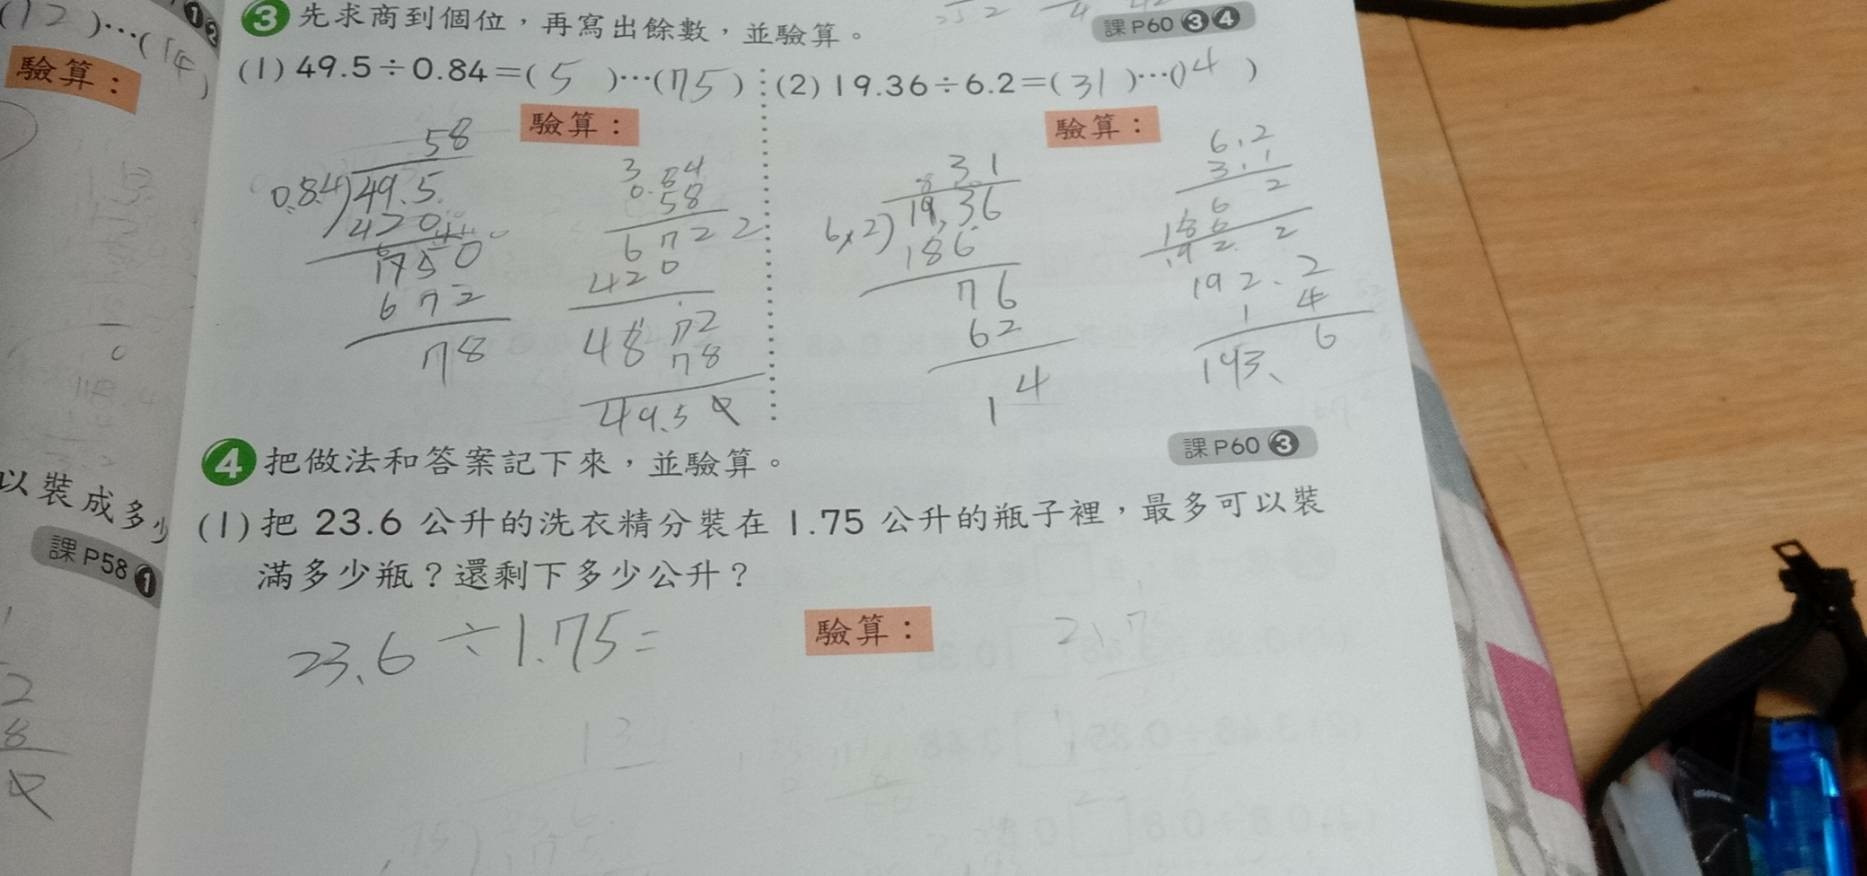 ❸ 先求商到個位，再寫出餘數，並驗算。
課P60 ❸❹
(1) 49.5÷0.84=( 5 )…(75)
驗算：
58
0.84 49.5
420
1750
672
78
0.84
58
672
420
48 72
78
49.5
(2) 19.36÷6.2=( 31 )…(14)
驗算：
3.1
6.2 19.36
186
76
62
14
6.2
3.1
6 2
186
192.2
192.2
1 4
193.6
❹ 把做法和答案記下來，並驗算。
課P60 ❸
(1) 把 23.6 公升的洗衣精分裝在 1.75 公升的瓶子裡，最多可以裝
滿多少瓶？還剩下多少公升？
23.6÷1.75=
驗算：
13
(12)…(14)
驗算：
以裝成多少
課P58 ❶
2
8